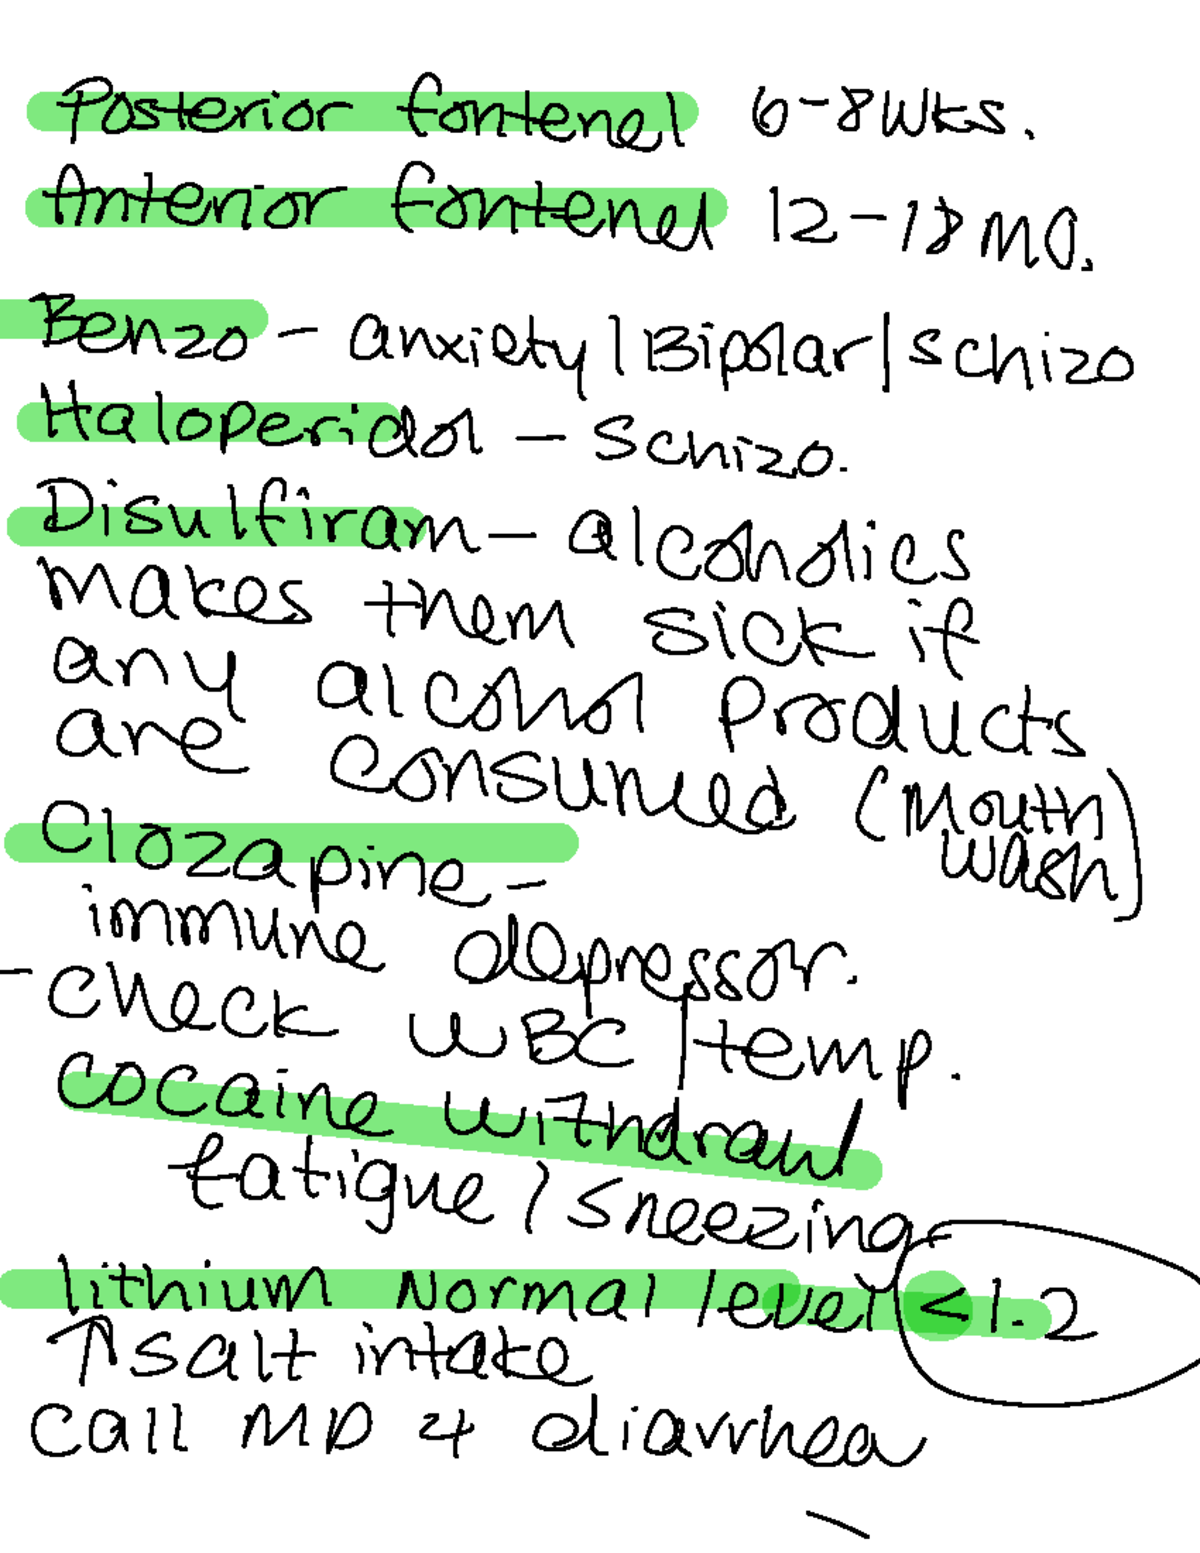 Posterior fontenel 6-8wks.
Anterior fontenel 12-18 MO.
Benzo - anxiety | Bipolar | schizo
Haloperidol - Schizo.
Disulfiram - alcoholics
makes them sick if
any alcohol products
are consumed (mouth
wash)
Clozapine -
immune depressor.
- check WBC | temp.
cocaine withdrawl
fatigue / sneezing
lithium Normal level < 1.2
↑ salt intake
call MD 4 diarrhea